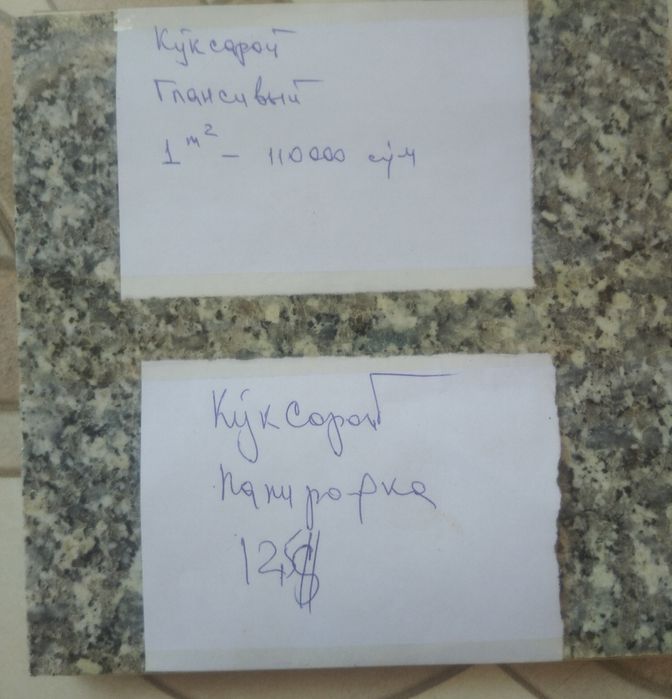 Кўксарой
Глансивый
1 m² – 110000 сўм
Кўксарой
Памировка